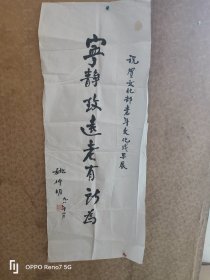 祝贺文化部老年文化成果展
宁静致远老有所为
姚仲明
九一年一月
OPPO Reno7 5G